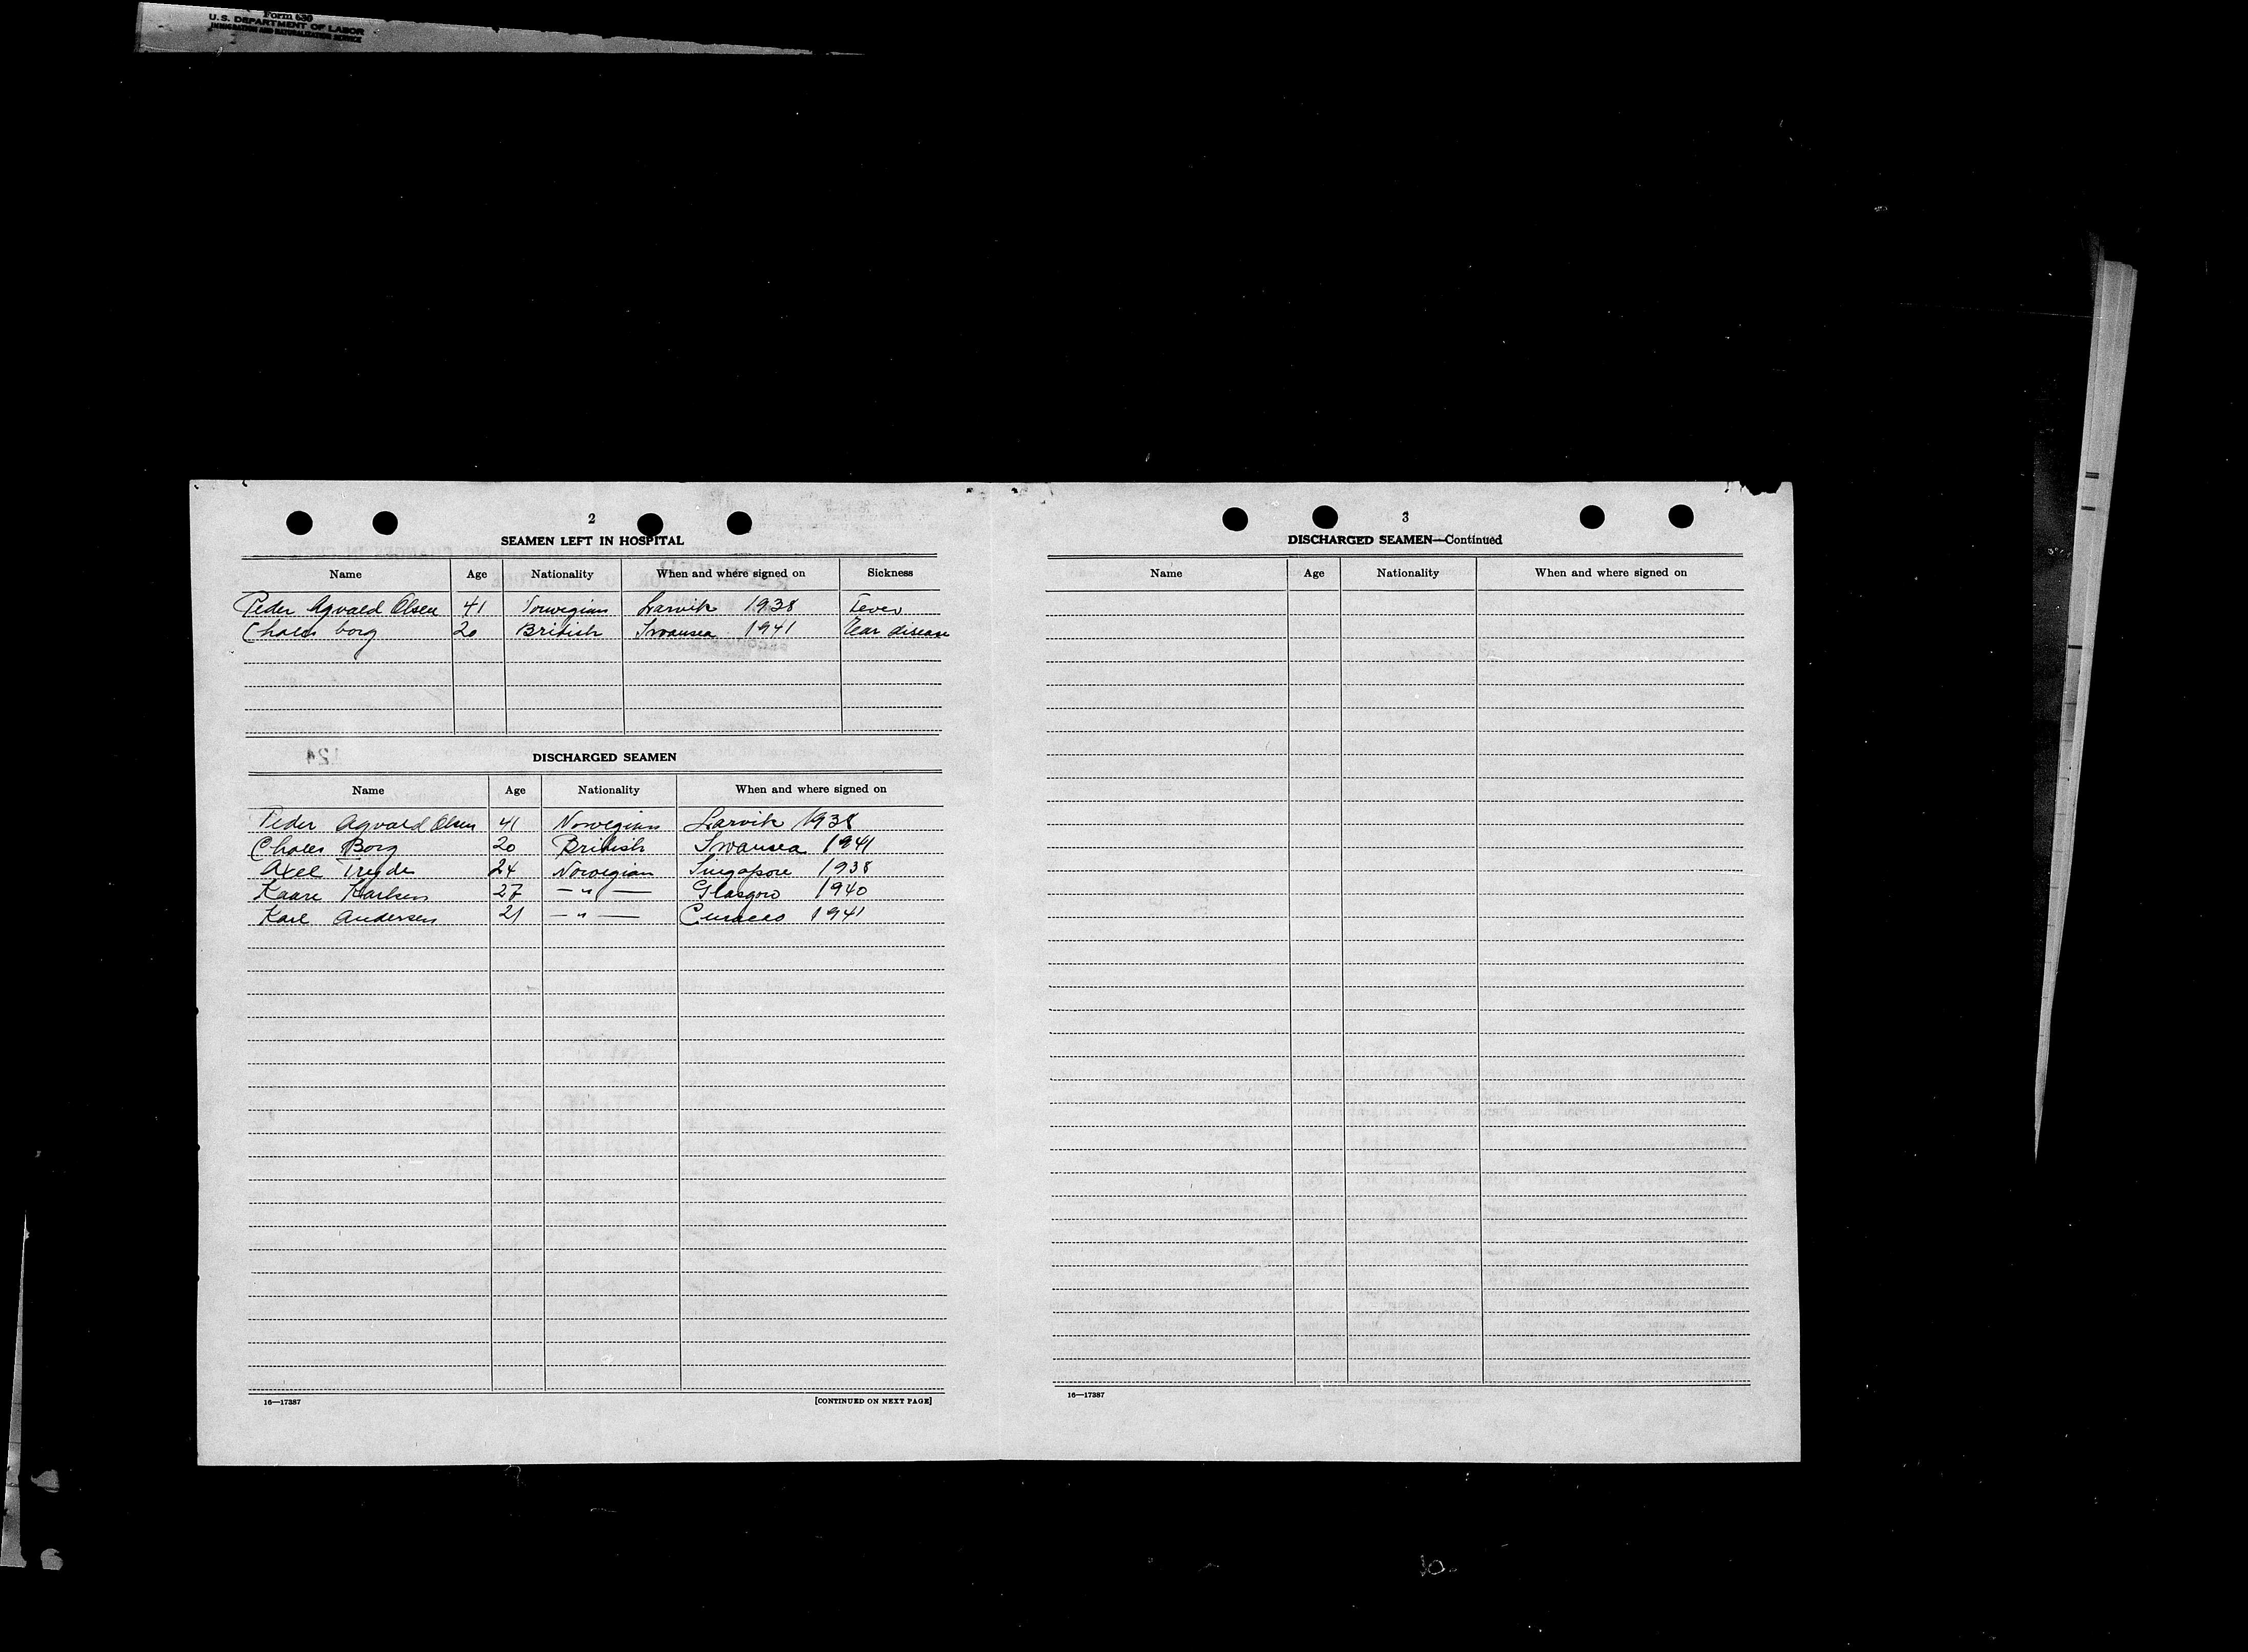 Form 630
U.S. DEPARTMENT OF LABOR
IMMIGRATION AND NATURALIZATION SERVICE
2
SEAMEN LEFT IN HOSPITAL
Name Age Nationality When and where signed on Sickness
Peder Agvald Olsen 41 Norwegian Larvik 1938 Fever
Choles borg 20 British Swansea 1941 Ear disease
124
DISCHARGED SEAMEN
Name Age Nationality When and where signed on
Peder Agvald Olsen 41 Norwegian Larvik 1938
Choles Borg 20 British Swansea 1941
Axel Tryde 24 Norwegian Singapore 1938
Kaare Karlsen 27 — " — Glasgow 1940
Karl Andersen 21 — " — Curacao 1941
16—17387 [CONTINUED ON NEXT PAGE]
3
DISCHARGED SEAMEN—Continued
Name Age Nationality When and where signed on
16—17387